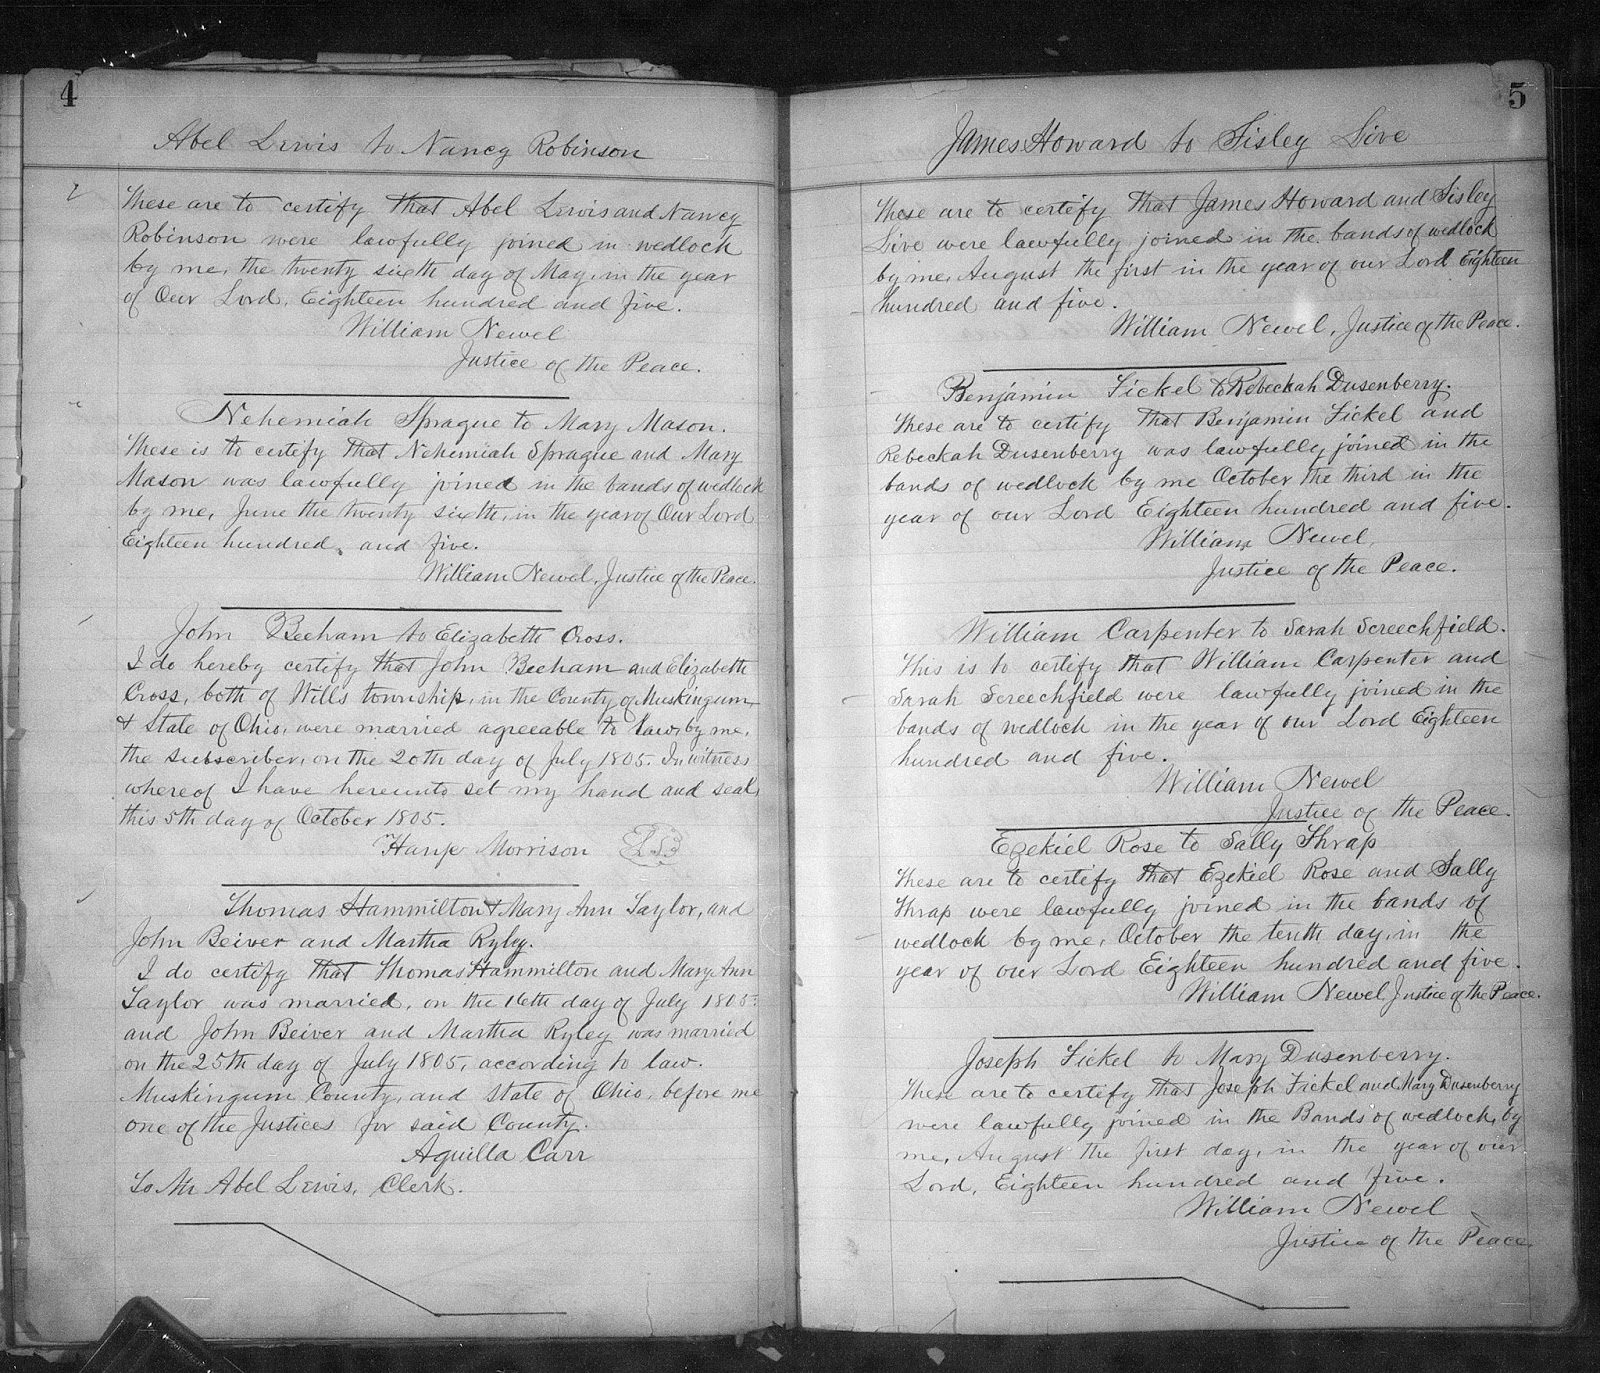 4
Abel Lewis to Nancy Robinson
These are to certify that Abel Lewis and Nancy
Robinson were lawfully joined in wedlock
by me, the twenty sixth day of May, in the year
of Our Lord, Eighteen hundred and five.
William Newel
Justice of the Peace.
Nehemiah Sprague to Mary Mason.
These is to certify that Nehemiah Sprague and Mary
Mason was lawfully joined in the bands of wedlock
by me, June the twenty sixth, in the year of Our Lord
Eighteen hundred, and five.
William Newel, Justice of the Peace.
John Beeham to Elizabeth Cross.
I do hereby certify that John Beeham and Elizabeth
Cross, both of Wills township, in the County of Muskingum,
& State of Ohio, were married agreeable to law, by me,
the subscriber, on the 20th day of July 1805. In witness
whereof I have hereunto set my hand and seal,
this 5th day of October 1805.
Morrison LS
Thomas Hammilton & Mary Ann Taylor, and
John Beiver and Martha Ryley.
I do certify that Thomas Hammilton and Mary Ann
Taylor was married, on the 16th day of July 1805
and John Beiver and Martha Ryley was married
on the 25th day of July 1805, according to law.
Muskingum County, and State of Ohio, before me
one of the Justices for said County.
Aquilla Carr
To Mr Abel Lewis, Clerk.
5
James Howard to Sisley Sive
These are to certify that James Howard and Sisley
Sive were lawfully joined in the bands of wedlock
by me, August the first in the year of our Lord Eighteen
hundred and five.
William Newel, Justice of the Peace.
Benjamin Fickel to Rebeckah Dusenberry.
These are to certify that Benjamin Fickel and
Rebeckah Dusenberry was lawfully joined in the
bands of wedlock by me October the third in the
year of our Lord Eighteen hundred and five.
William Newel,
Justice of the Peace.
William Carpenter to Sarah Screechfield.
This is to certify that William Carpenter and
Sarah Screechfield were lawfully joined in the
bands of wedlock in the year of our Lord Eighteen
hundred and five.
William Newel
Justice of the Peace.
Ezekiel Rose to Sally Thrap
These are to certify that Ezekiel Rose and Sally
Thrap were lawfully joined in the bands of
wedlock by me, October the tenth day, in the
year of our Lord Eighteen hundred and five.
William Newel Justice of the Peace.
Joseph Fickel to Mary Dusenberry.
These are to certify that Joseph Fickel and Mary Dusenberry
were lawfully joined in the Bands of wedlock, by
me, August the first day, in the year of our
Lord, Eighteen hundred and five.
William Newel
Justice of the Peace